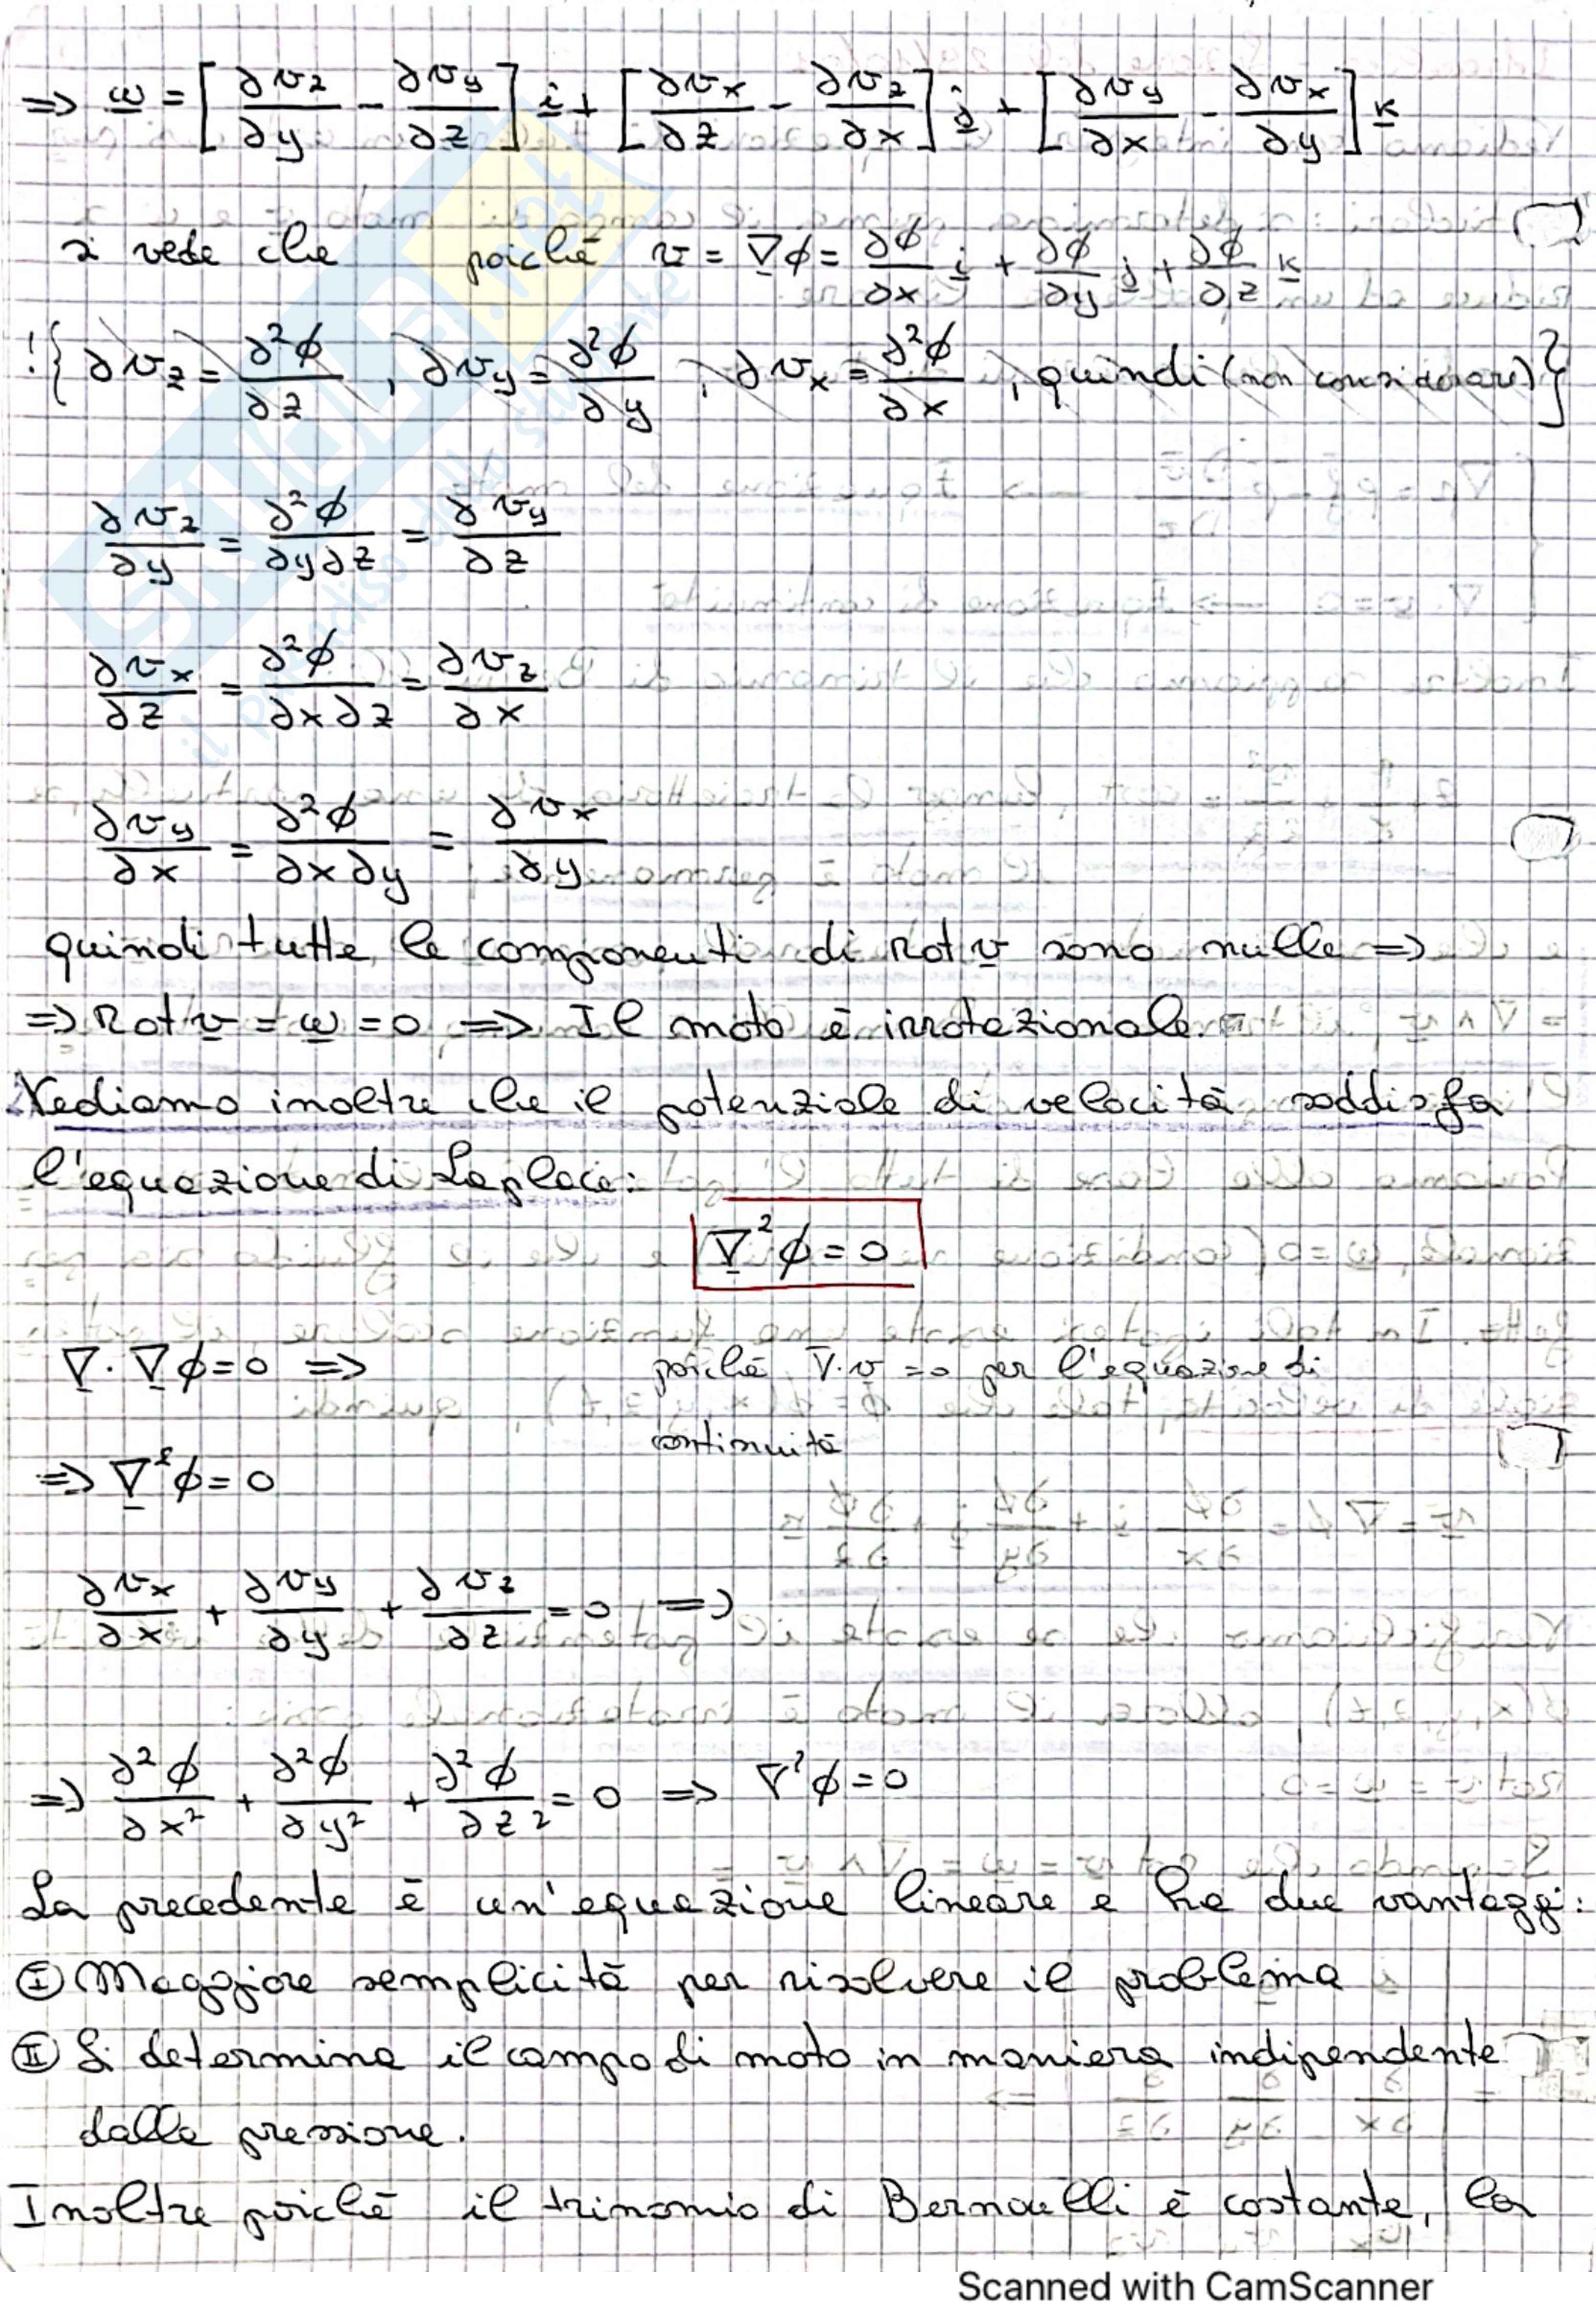 => ω = [∂v_z/∂y - ∂v_y/∂z] i + [∂v_x/∂z - ∂v_z/∂x] j + [∂v_y/∂x - ∂v_x/∂y] k
si vede che poiché v = ∇φ = ∂φ/∂x i + ∂φ/∂y j + ∂φ/∂z k
!{ ∂v_z = ∂²φ/∂z , ∂v_y = ∂²φ/∂y , ∂v_x = ∂²φ/∂x , quindi (non considerare) }
∂v_z/∂y = ∂²φ/∂y∂z = ∂v_y/∂z
∂v_x/∂z = ∂²φ/∂x∂z = ∂v_z/∂x
∂v_y/∂x = ∂²φ/∂x∂y = ∂v_x/∂y
quindi tutte le componenti di Rot v sono nulle =>
=> Rot v = ω = 0 => Il moto è irrotazionale.
Vediamo inoltre che il potenziale di velocità soddisfa
l'equazione di Laplace:
∇²φ = 0
∇·∇φ = 0 => poiché ∇·v = 0 per l'equazione di
continuità
=> ∇²φ = 0
∂v_x/∂x + ∂v_y/∂y + ∂v_z/∂z = 0 =>
=> ∂²φ/∂x² + ∂²φ/∂y² + ∂²φ/∂z² = 0 => ∇²φ = 0
La precedente è un'equazione lineare e ha due vantaggi:
Ⅰ Maggiore semplicità per risolvere il problema
Ⅱ Si determina il campo di moto in maniera indipendente
dalla pressione.
Inoltre poiché il trinomio di Bernoulli è costante, la
Scanned with CamScanner